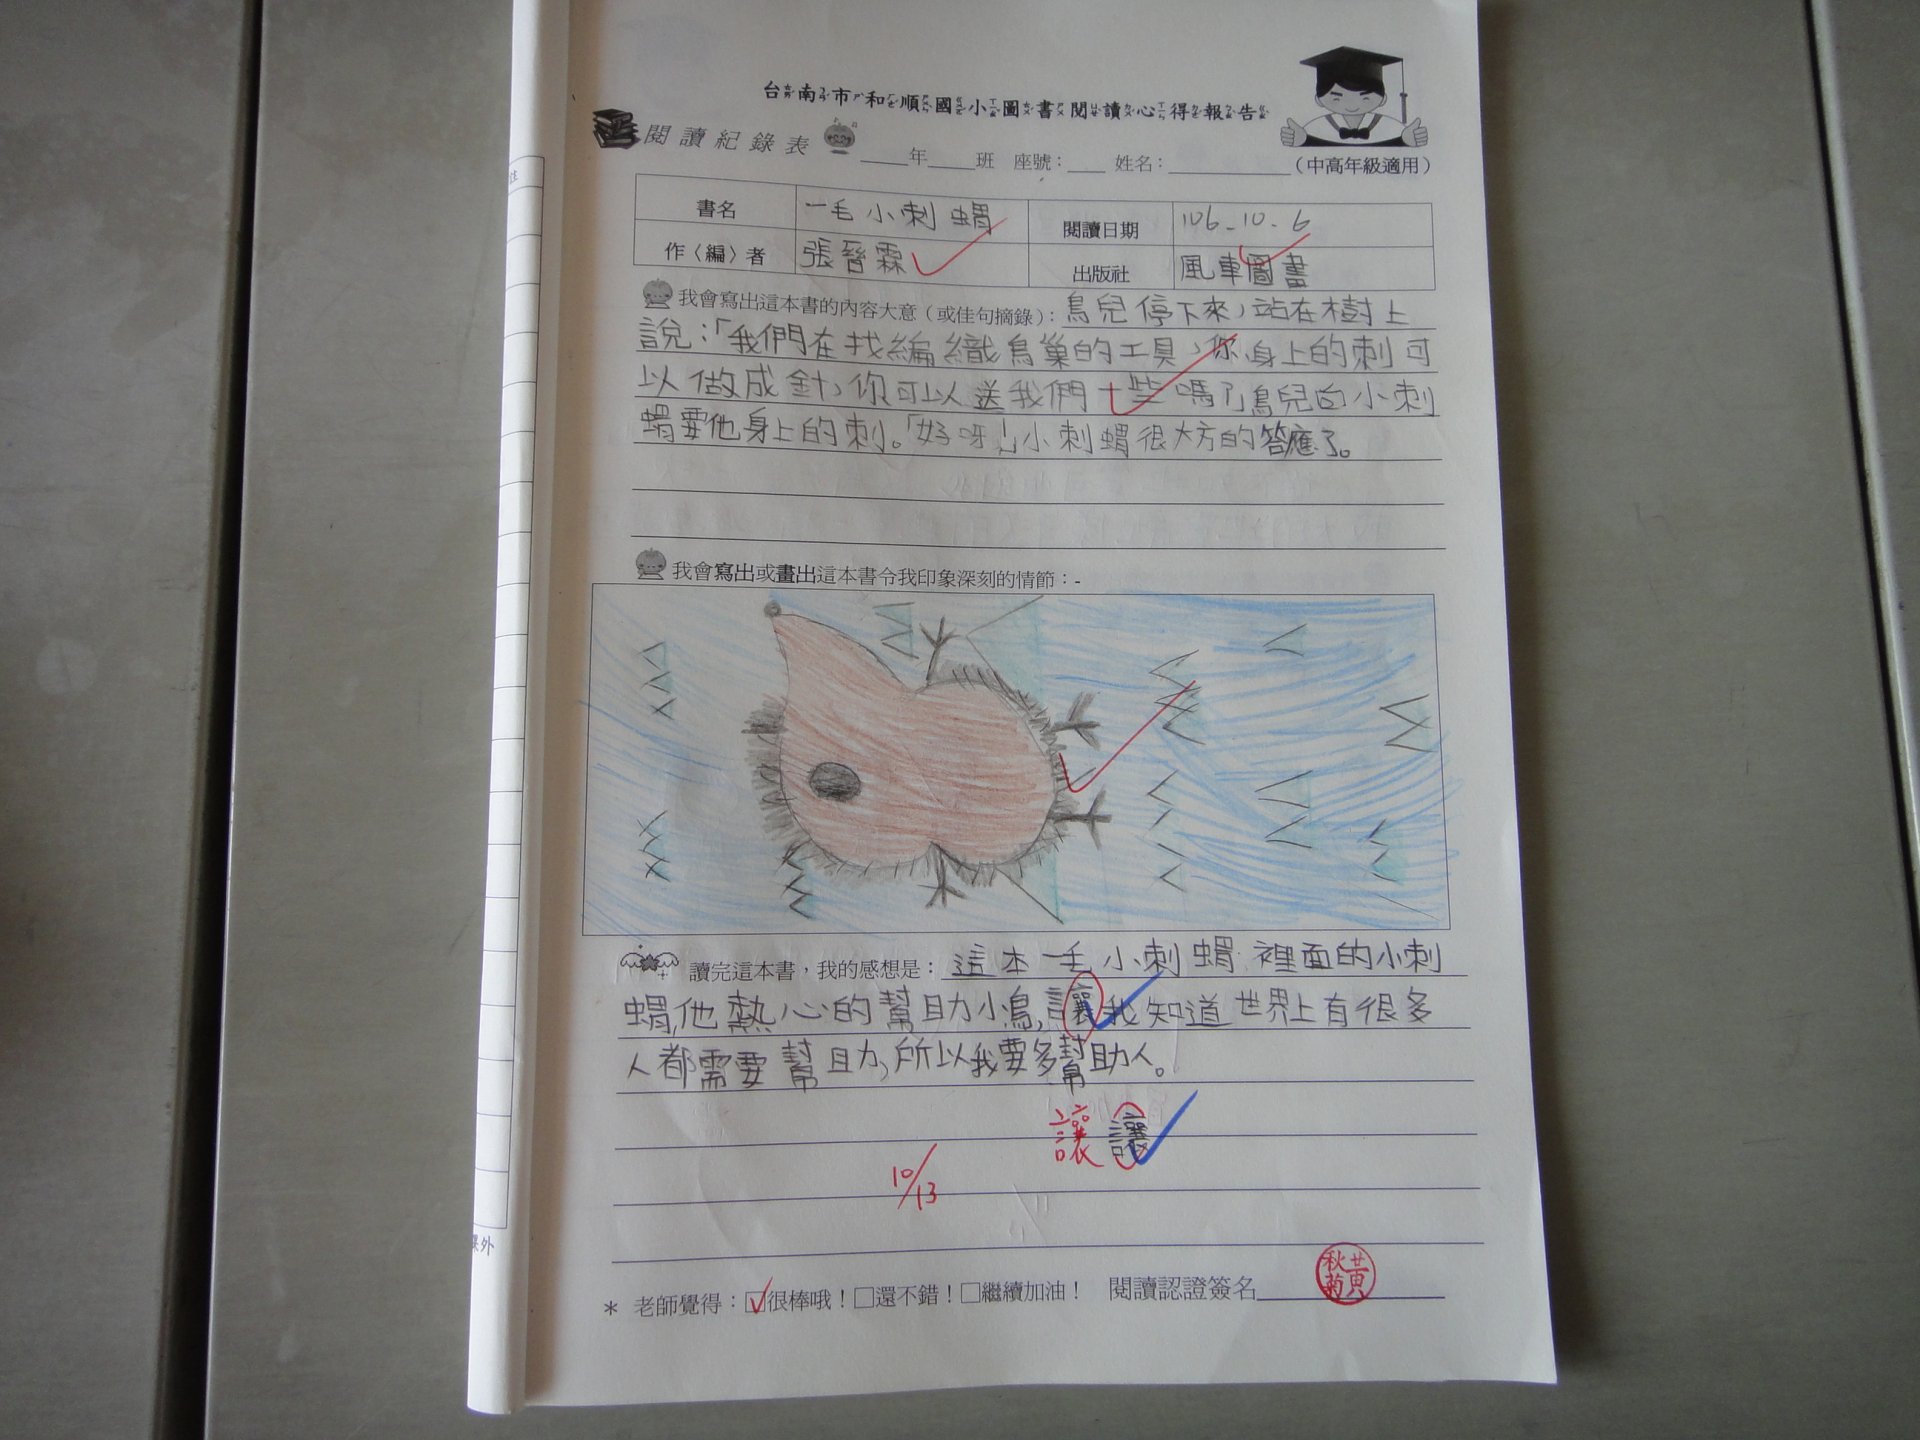 台南市和順國小圖書閱讀心得報告
閱讀紀錄表 ____年____班 座號：____ 姓名：________ （中高年級適用）
書名 一毛小刺蝟 閱讀日期 106-10-6
作〈編〉者 張晉霖 出版社 風車圖畫
我會寫出這本書的內容大意（或佳句摘錄）：鳥兒停下來，站在樹上
說：「我們在找編織鳥巢的工具，你身上的刺可
以做成針，你可以送我們一些嗎？」鳥兒向小刺
蝟要他身上的刺。「好呀！」小刺蝟很大方的答應了。
我會寫出或畫出這本書令我印象深刻的情節：-
讀完這本書，我的感想是：這本一毛小刺蝟裡面的小刺
蝟，他熱心的幫助小鳥，讓我知道世界上有很多
人都需要幫助，所以我要多幫助人。
讓 讓
10/13
* 老師覺得：☑很棒哦！□還不錯！□繼續加油！ 閱讀認證簽名 黃秋菊
課外